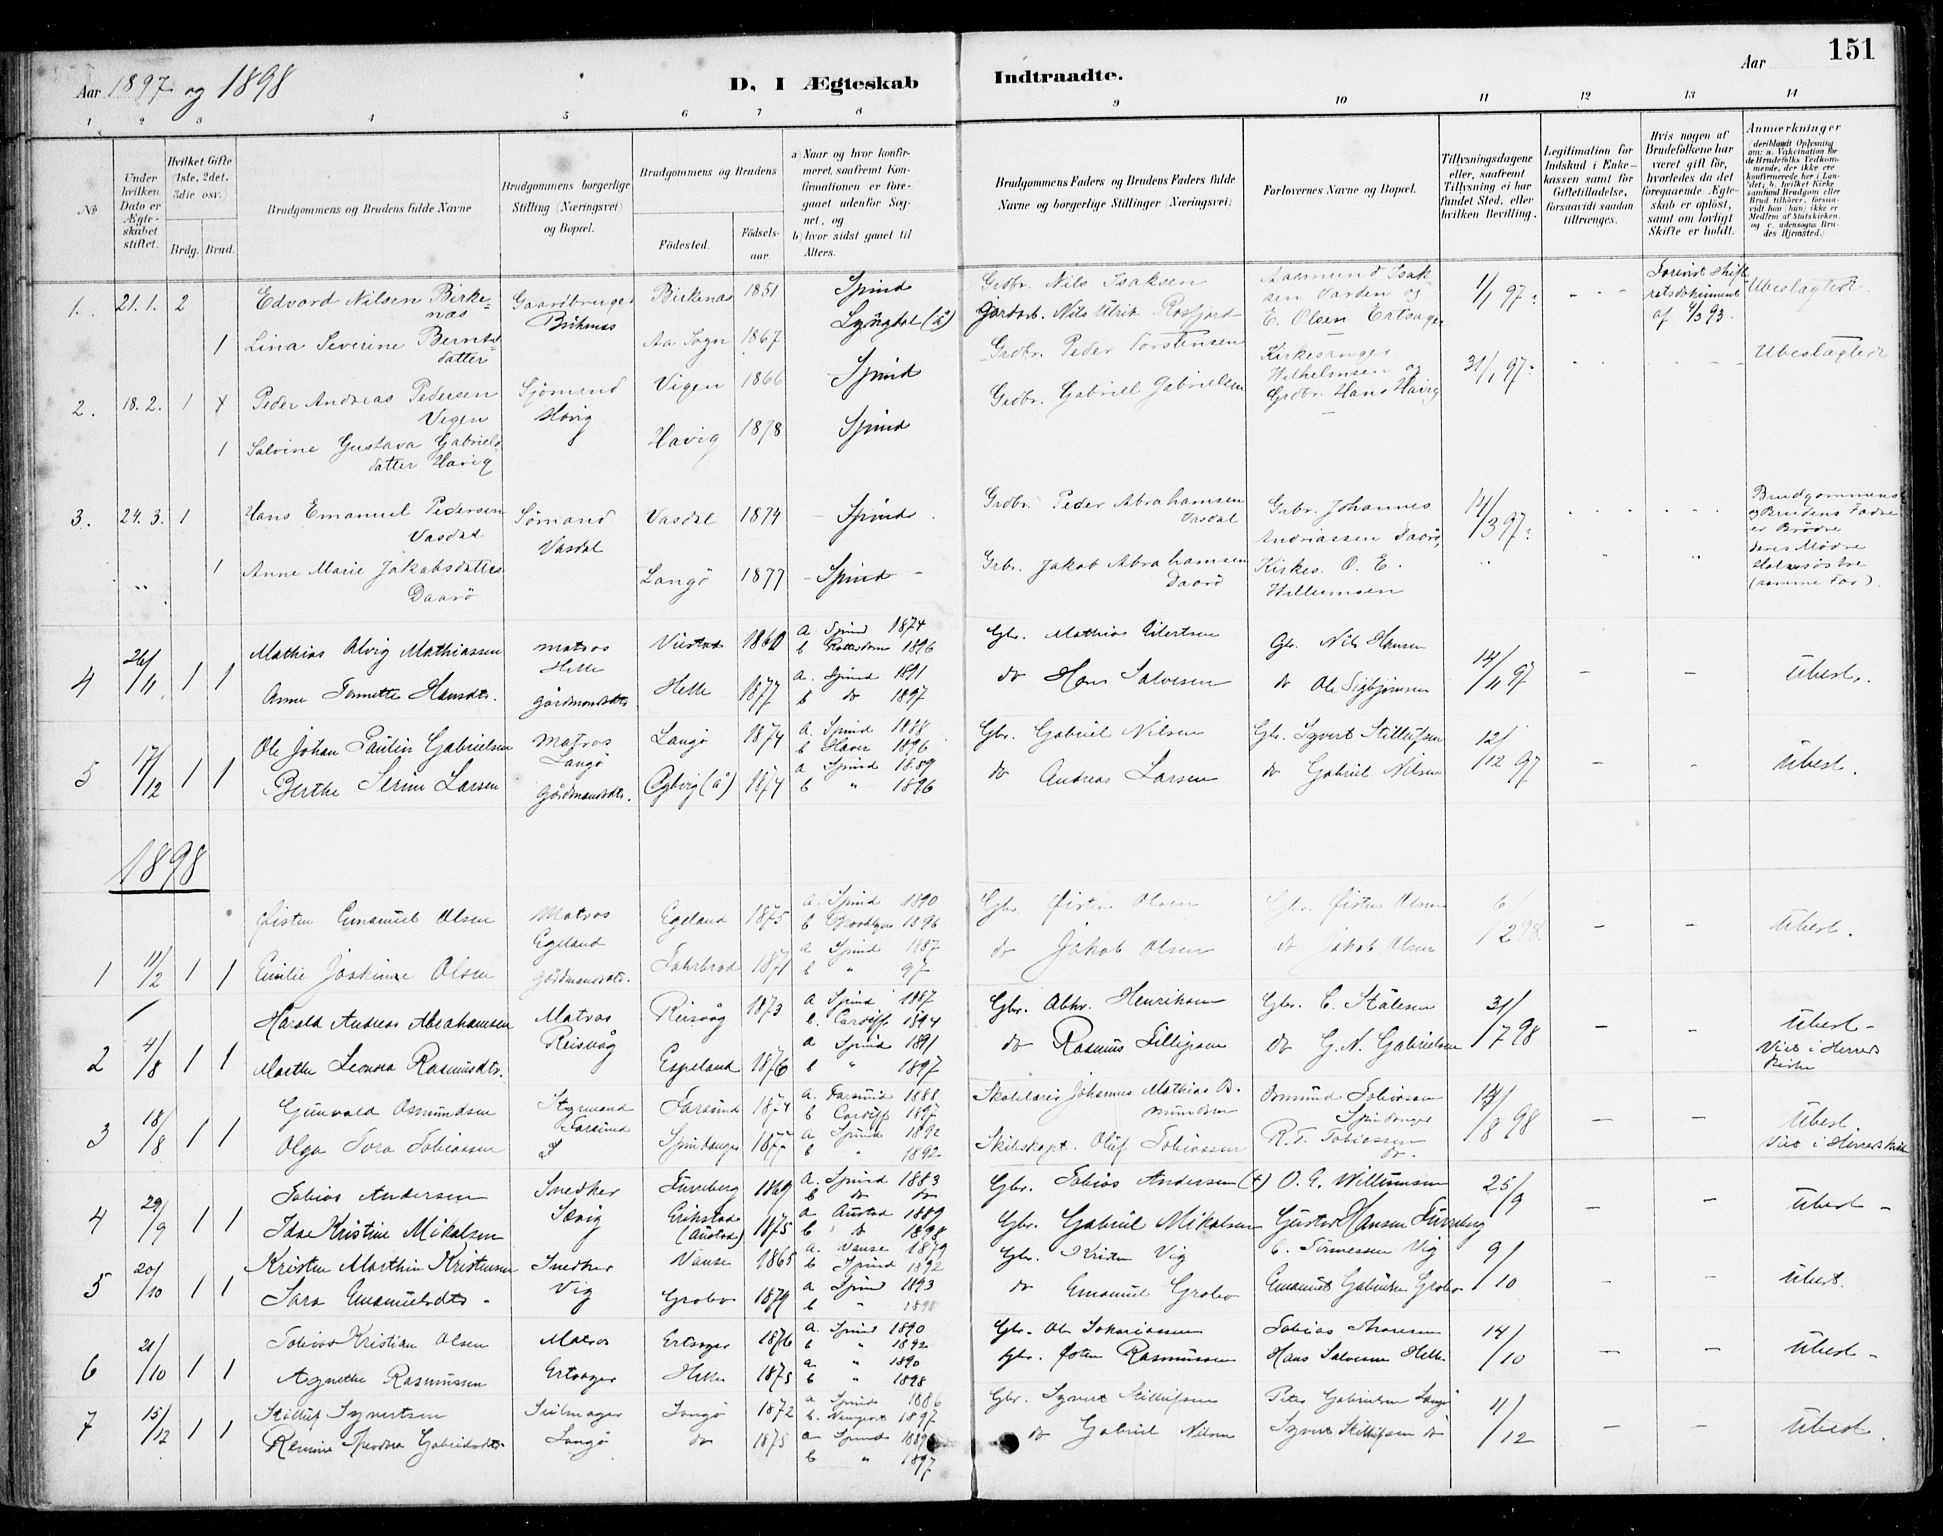 Aar 1897 og 1898
D. I Ægteskab Indtraadte.
Aar 151
1 2 3 4 5 6 7 8 9 10 11 12 13 14
No
Under hvilken Dato er Ægteskabet stiftet.
Hvilket Gifte (1ste, 2det, 3die osv.)
Brdg. Brud.
Brudgommens og Brudens fulde Navne
Brudgommens borgerlige Stilling (Næringsvei) og Bopæl.
Brudgommens og Brudens
Fødested. Fødselsaar.
a) Naar og hvor konfirmeret, saafremt Konfirmationen er foregaaet udenfor Sognet, og
b) hvor sidst gaaet til Alters.
Brudgommens Faders og Brudens Faders fulde Navne og borgerlige Stillinger (Næringsvei)
Forlovernes Navne og Bopæl.
Tillysningsdagene eller, saafremt Tillysning ei har fundet Sted, efter hvilken Bevilling.
Legitimation for Indskud i Enkekassen samt for Giftetilladelse, forsaavidt saadan tiltrænges.
Hvis nogen af Brudefolkene har været gift før, hvorledes da det foregaaende Ægteskab er opløst, samt om lovligt Skifte er holdt.
Anmærkninger (deriblandt Oplysning om: a. Vakcination for de Brudefolks Vedkommende, der ikke ere konfirmerede her i Landet; b. hvilket Kirkesamfund Brudgom eller Brud tilhører, forsaavidt han (hun) ikke er Medlem af Statskirken, og c. udensogns Brudes Hjemsted.)
1. 21.1. 2 Edvard Nilsen Birkenæs Gaardbruger Birkenæs Birkenæs 1851 Spind Grdbr. Nils Isaksen Aasmund Isaksen Varden og 1/1 97. Ubeslægtede
1 Lina Severine Berntsdatter Aa Sogn 1867 Lyngdal (å) Gordarb. Nils Ulrik Rosfjord E. Olsen Ertsager af 1/3 93.
2. 18.2. 1 Peder Andreas Pedersen Vigen Sjömand Hövig Vigen 1866 Spind Grdbr. Peder Torstensen Kirkesanger Wilhelmsen og 31/1 97. Ubeslægtede
1 Salvine Gustava Gabrielsdatter Havig Havig 1878 Spind Grdbr. Gabriel Gabrielsen Grdbr. Hans Havig
3. 24.3. 1 Hans Emanuel Pedersen Vasdal Sömand Vasdal Vasdal 1874 Spind Grdbr. Peder Abrahamsen Vasdal Grbr. Johannes Andreassen Daarö, 14/3 97. Brudgommens og Brudens Fadre er Brödre
1 Anne Marie Jakobsdatter Daarö Langö 1877 Spind Grbr. Jakob Abrahamsen Daarö Kirkes. O. E. Willumsen deres Mödre Halvsöstre (samme Far).
4 26/11 1 1 Mathias Alvig Mathiassen matros Helle 1860 a Spind 1874 b Rotterdam 1896 Gbr. Mathias Eilertsen Gbr. Nils Hansen 14/11 97 Ubesl.
Anne Tonnette Hansdtr. gårdmandsdtr Helle 1877 a. Spind 1891 b do 1897 do Hans Salvesen do Ole Sigbjørnsen
5 17/12 1 1 Ole Johan Paulin Gabrielsen Matros Langø Langø 1874 a. Spind 1888 b Havre 1896 Gbr. Gabriel Nilsen Gbr. Syvert Stillufsen 12/12 97 Ubesl.
Berthe Serine Larsen gårdmandsdtr. (å) 1874 a Spind 1889 b " 1896 do Andreas Larsen do Gabriel Nilsen
1898
1 11/2 1 1 Øisten Emanuel Olsen Matros Egeland Egeland 1875 a. Spind 1890 b Brooklyn 1896 Gbr. Øisten Olsen Gbr. Øisten Olsen 6/2 98. Ubesl.
Emilie Joskime Olsen gårdmandsdtr. 1871 a Spind 1887 b " 97 do Jakob Olsen do Jakob Olsen
2 4/8 1 1 Harald Andreas Abrahamsen Matros Reisvåg Reisvåg 1873 a Spind 1887 b. Cardiff 1894 Gbr. Abhr. Henriksen Gbr. E. Stålesen 31/7 98 Ubesl.
Marthe Leonora Rasmusdtr. Espeland 1876 a Spind 1891 b " 1897 do Rasmus do G. N. Gabrielsen Viet i Herreds Kirke
3 18/8 1 1 Gunvald Osmundsen Styrmand Farsund Farsund 1874 a. Farsund 1888 b Cardiff 1897 Skolelærer Johannes Mathias Osmundsen Osmund Tobiassen Spindanger 14/8 98 Ubesl
Olga Tora Tobiassen Spindanger 1877 a Spind 1892 b " 1892 Skibskapt. Oluf Tobiassen R. T. Tobiassen do. Viet i Herreds Kirke
4 29/9 1 1 Tobias Andersen Snedker Sævig Furreberg 1860 a. Spind 1883 b do do Gbr. Tobias Andersen (†) O. E. Willumsen 25/9 Ubesl
Ida Kristine Mikalsen Erikstad (Austad) 1875 a Austad 1889 b do 1898 Gbr. Gabriel Mikalsen Gustav Hansen Furreberg
5 20/10 1 1 Kristen Marthin Kristensen Snedker Vig Vanse 1865 a. Vanse 1879 b Spind 1892 Gbr. Kristen Vig E. Tönnessen Vig 9/10 Ubesl.
Sara Emanuelsdtr. Grobo 1879 a Spind 1893 b " 1898 do Emanuel Grobo Emanuel Gabrielsen Grobo
6 21/10 1 1 Tobias Kristian Olsen Matros Ertsager Ertsager 1876 a. Spind 1890 b " 1892 Gbr. Ole Sakariassen Tobias Thoresen 14/10 Ubesl
Agnethe Rasmussen Helle 1875 a " 1890 b " 1898 Gbr. Østen Rasmussen Hans Salvesen Helle
7 15/12 1 1 Stilluf Syvertsen Seilmager Langø Langø 1872 a Spind 1886 b. Newport 1897 Gbr. Syvert Stillufsen Peter Gabrielsen Langø 4/12 Ubesl.
Remine Teodora Gabrielsdtr. do 1875 a Spind b " 1897 do Gabriel Nilsen Syvert Stillufsen do